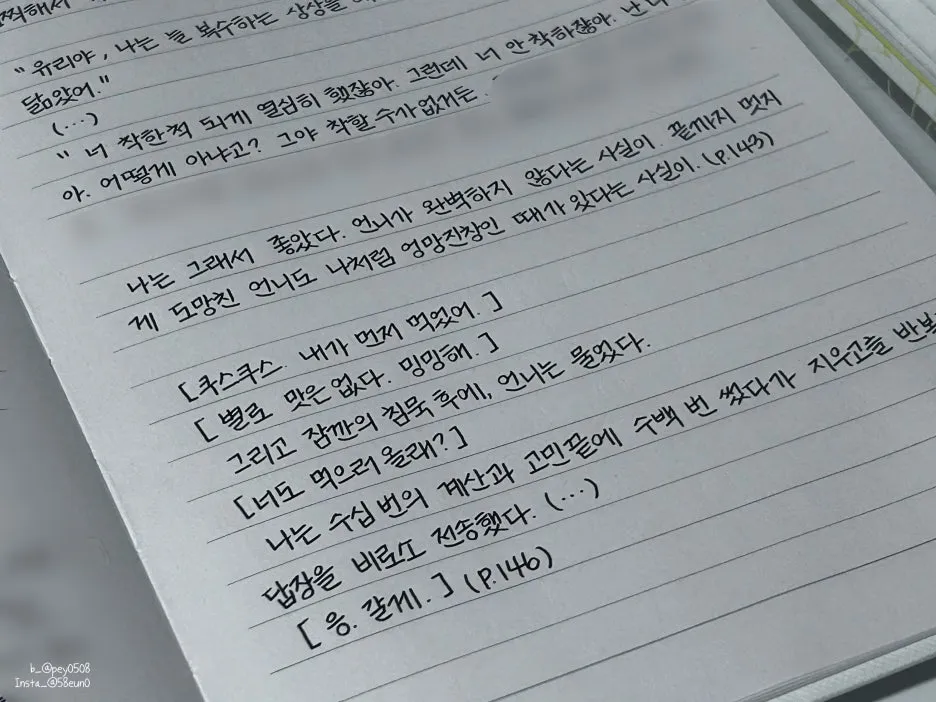 "유리야, 나는 늘 복수하는 상상을
닮았어."
(…)
" 너 착한척 되게 열심히 했잖아. 그런데 너 안 착하잖아. 난
아. 어떻게 아냐고? 그야 착할 수가 없거든.
나는 그래서 좋았다. 언니가 완벽하지 않다는 사실이. 끝까지 멋지
게 도망친 언니도 나처럼 엉망진창인 때가 있다는 사실이. (p.143)
[쿠스쿠스. 내가 먼저 먹었어. ]
[ 별로 맛은 없다. 밍밍해. ]
그리고 잠깐의 침묵 후에, 언니는 물었다.
[너도 먹으러 올래? ]
나는 수십 번의 계산과 고민 끝에 수백 번 썼다가 지우고를 반복
답장을 비로소 전송했다. (…)
[ 응. 갈게. ] (p.146)
b_@pey0508
Insta_@58eun0